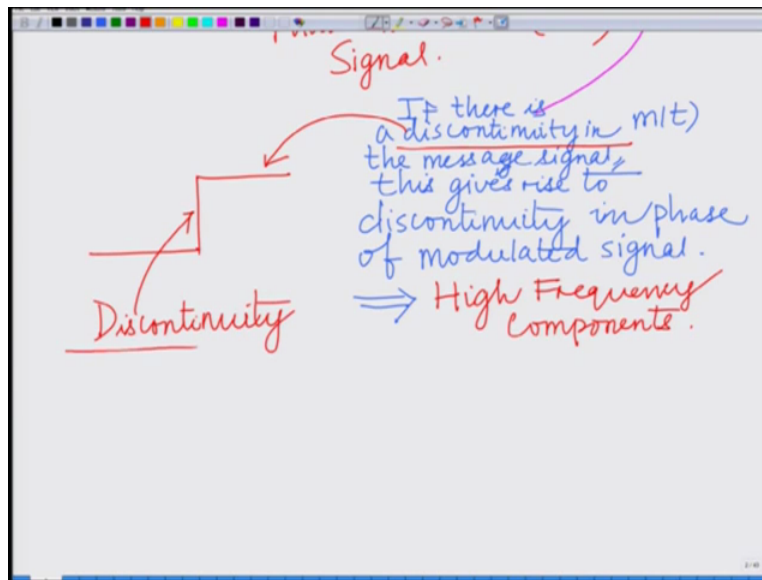 Signal.
If there is
a discontinuity in m(t)
the message signal,
this gives rise to
discontinuity in phase
of modulated signal.
Discontinuity
⇒ High Frequency
Components.